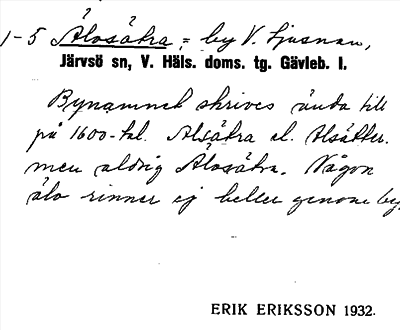 1-5 Älvsåkra = by V. Ljusnan,
Järvsö sn, V. Häls. doms. tg. Gävleb. l.
Bynamnet skrives ända till
på 1600-tal. Alsåkra el. Alsåkker.
men aldrig Älvsåkra. Någon
älv rinner ej heller genom by.
ERIK ERIKSSON 1932.